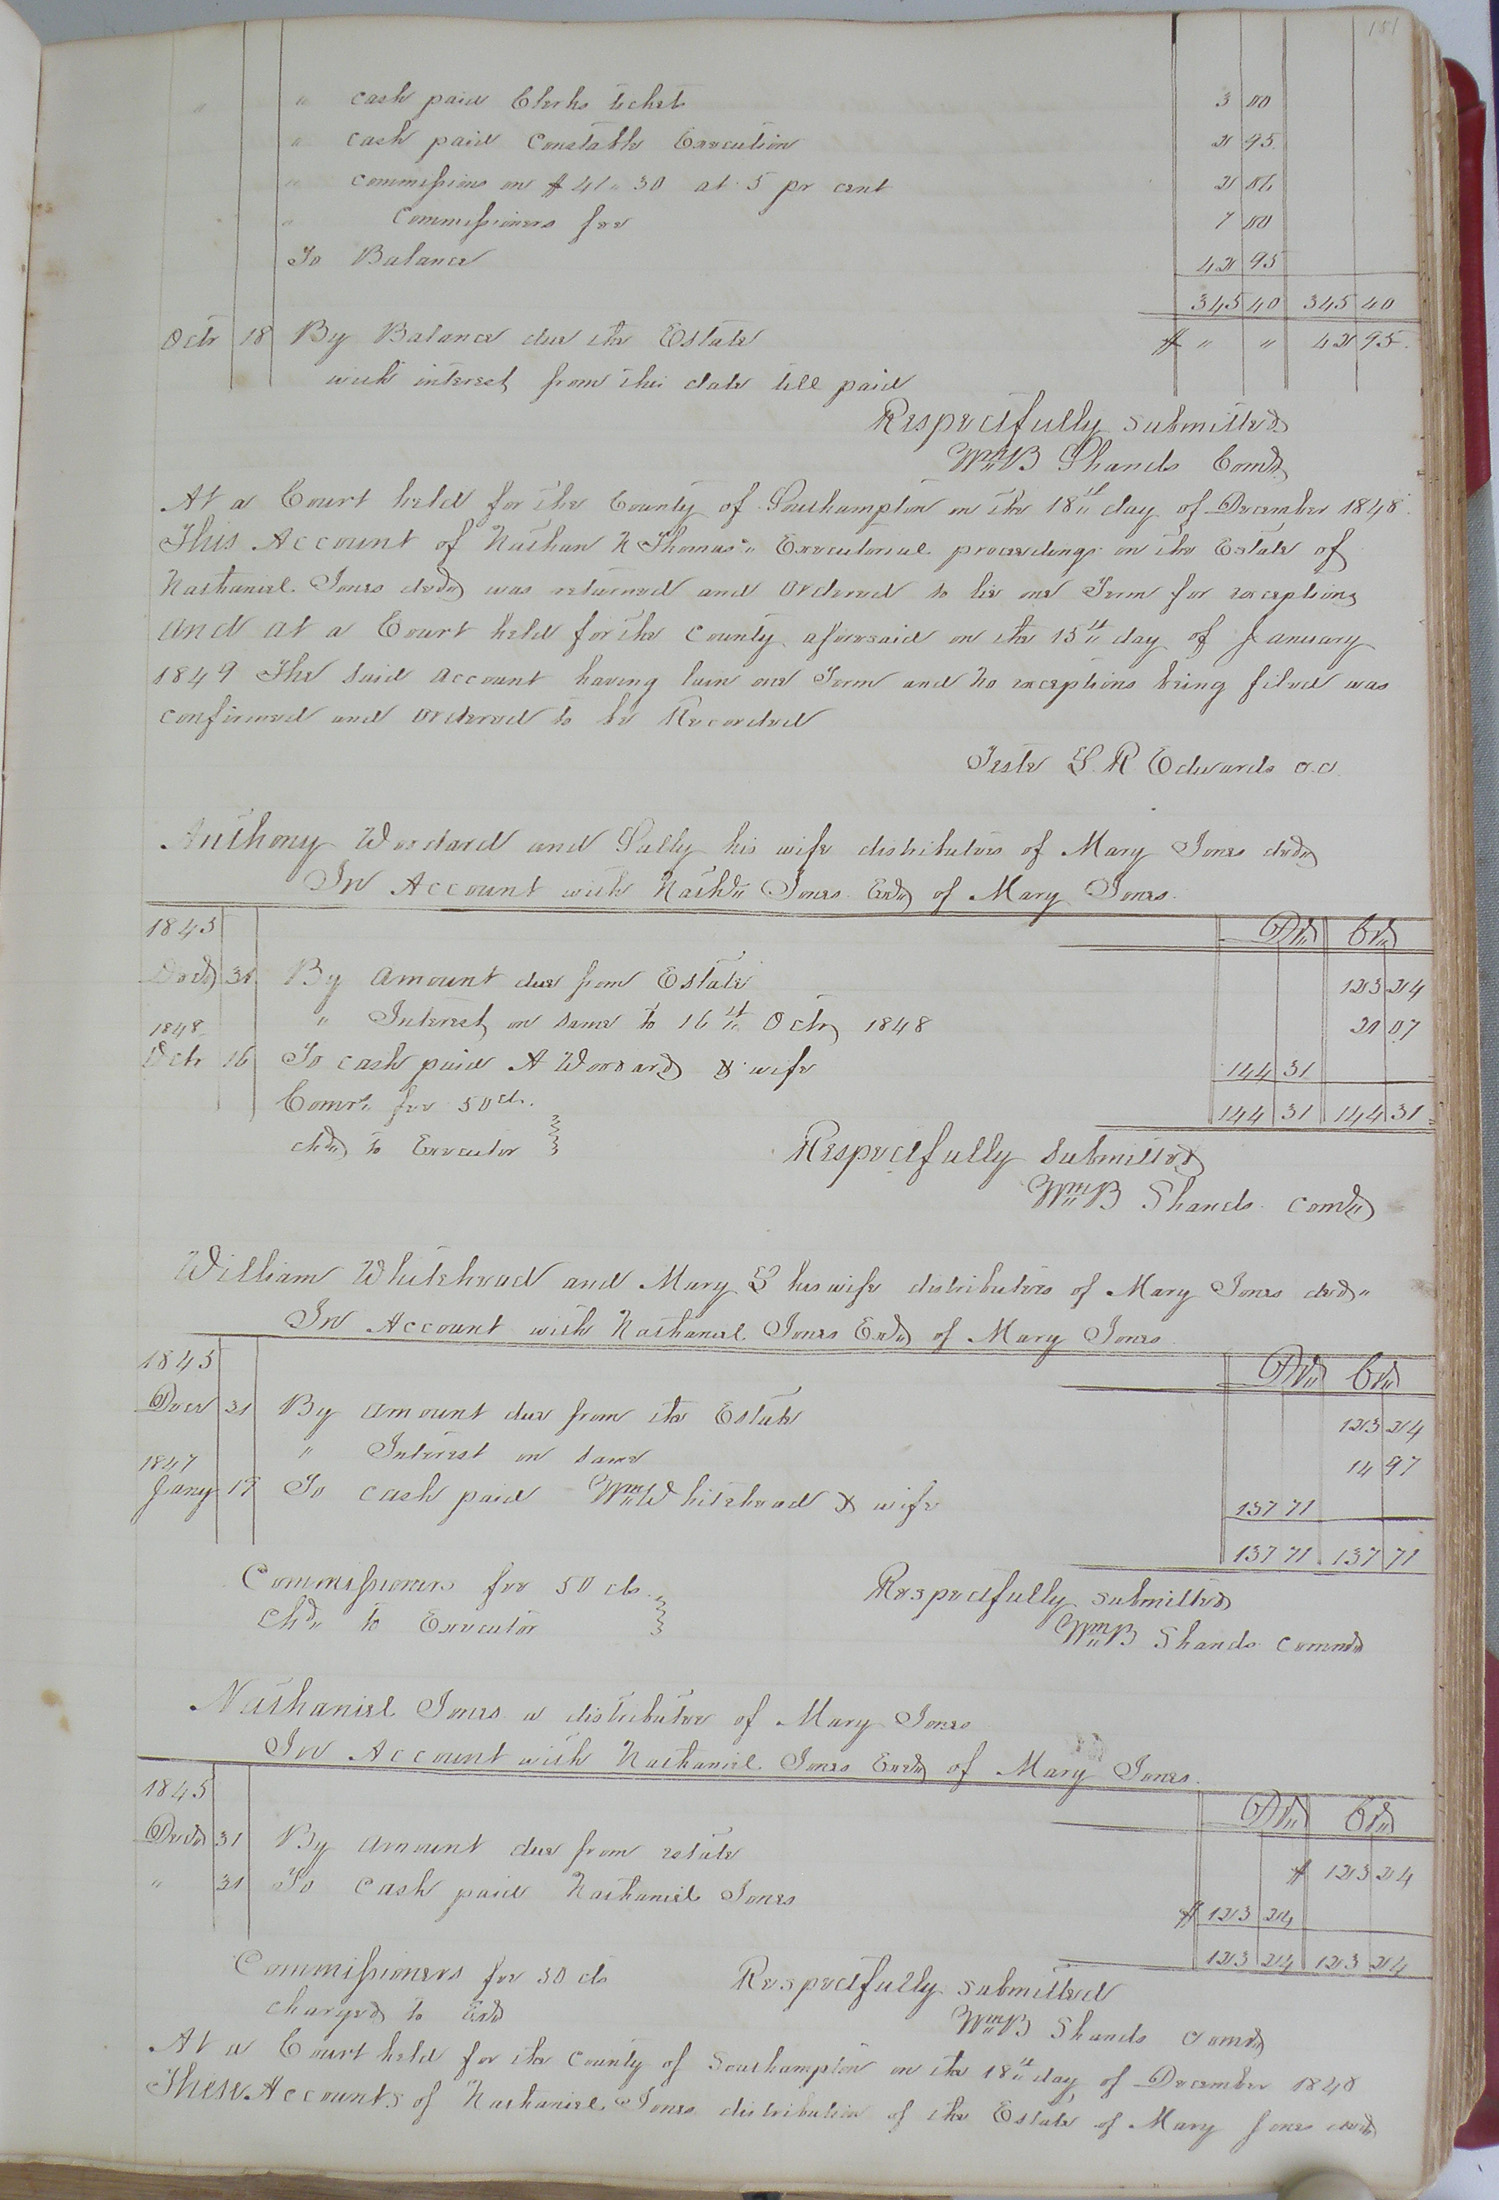 151
" " cash paid Clerks ticket 3 00
" cash paid Constable Execution 2 95
" commissions on $41.30 at 5 pr cent 2 06
" Commissioners fee 7 00
To Balance 42 95
345 40 345 40
Octr 18 By Balance due the Estate $ " " 42 95
with interest from this date till paid
Respectfully submitted
Wm B Shands Comr
At a Court held for the County of Southampton on the 18th day of December 1848
This Account of Nathan N Thomas" Executorial proceedings on the Estate of
Nathaniel Jones decd was returned and ordered to lie one Term for exceptions
And at a Court held for the County aforesaid on the 15th day of January
1849 The said account having lain one Term and no exceptions being filed was
confirmed and ordered to be Recorded
Teste L. R Edwards c.c.
Anthony Woodard and Sally his wife distributors of Mary Jones decd
In Account with Nathl Jones Exr of Mary Jones
1845 Dr Cr
Decr 31 By amount due from Estate 123 24
" Interest on same to 16th Octr 1848 21 07
1848
Octr 16 To cash paid A Woodard & wife 144 31
144 31 144 31
Comrs fee 50 cts.
chd to Executor
Respectfully submitted
Wm B Shands comr
William Whitehead and Mary L his wife distributors of Mary Jones decd
In Account with Nathaniel Jones Exr of Mary Jones
1845 Dr Cr
Decr 31 By amount due from the Estate 123 24
" Interest on same 14 97
1847
Jany 17 To cash paid Wm Whitehead & wife 137 71
137 71 137 71
Commissioners fee 50 cts
chd to Executor
Respectfully submitted
Wm B Shands commr
Nathaniel Jones a distributor of Mary Jones
In Account with Nathaniel Jones Exr of Mary Jones
1845 Dr Cr
Decr 31 By amount due from estate $ 123 24
" 31 To cash paid Nathaniel Jones $ 123 24
123 24 123 24
Commissioners fee 50 cts
charged to Exr
Respectfully submitted
Wm B Shands comr
At a Court held for the County of Southampton on the 18th day of December 1848
These Accounts of Nathaniel Jones distribution of the Estate of Mary Jones decd